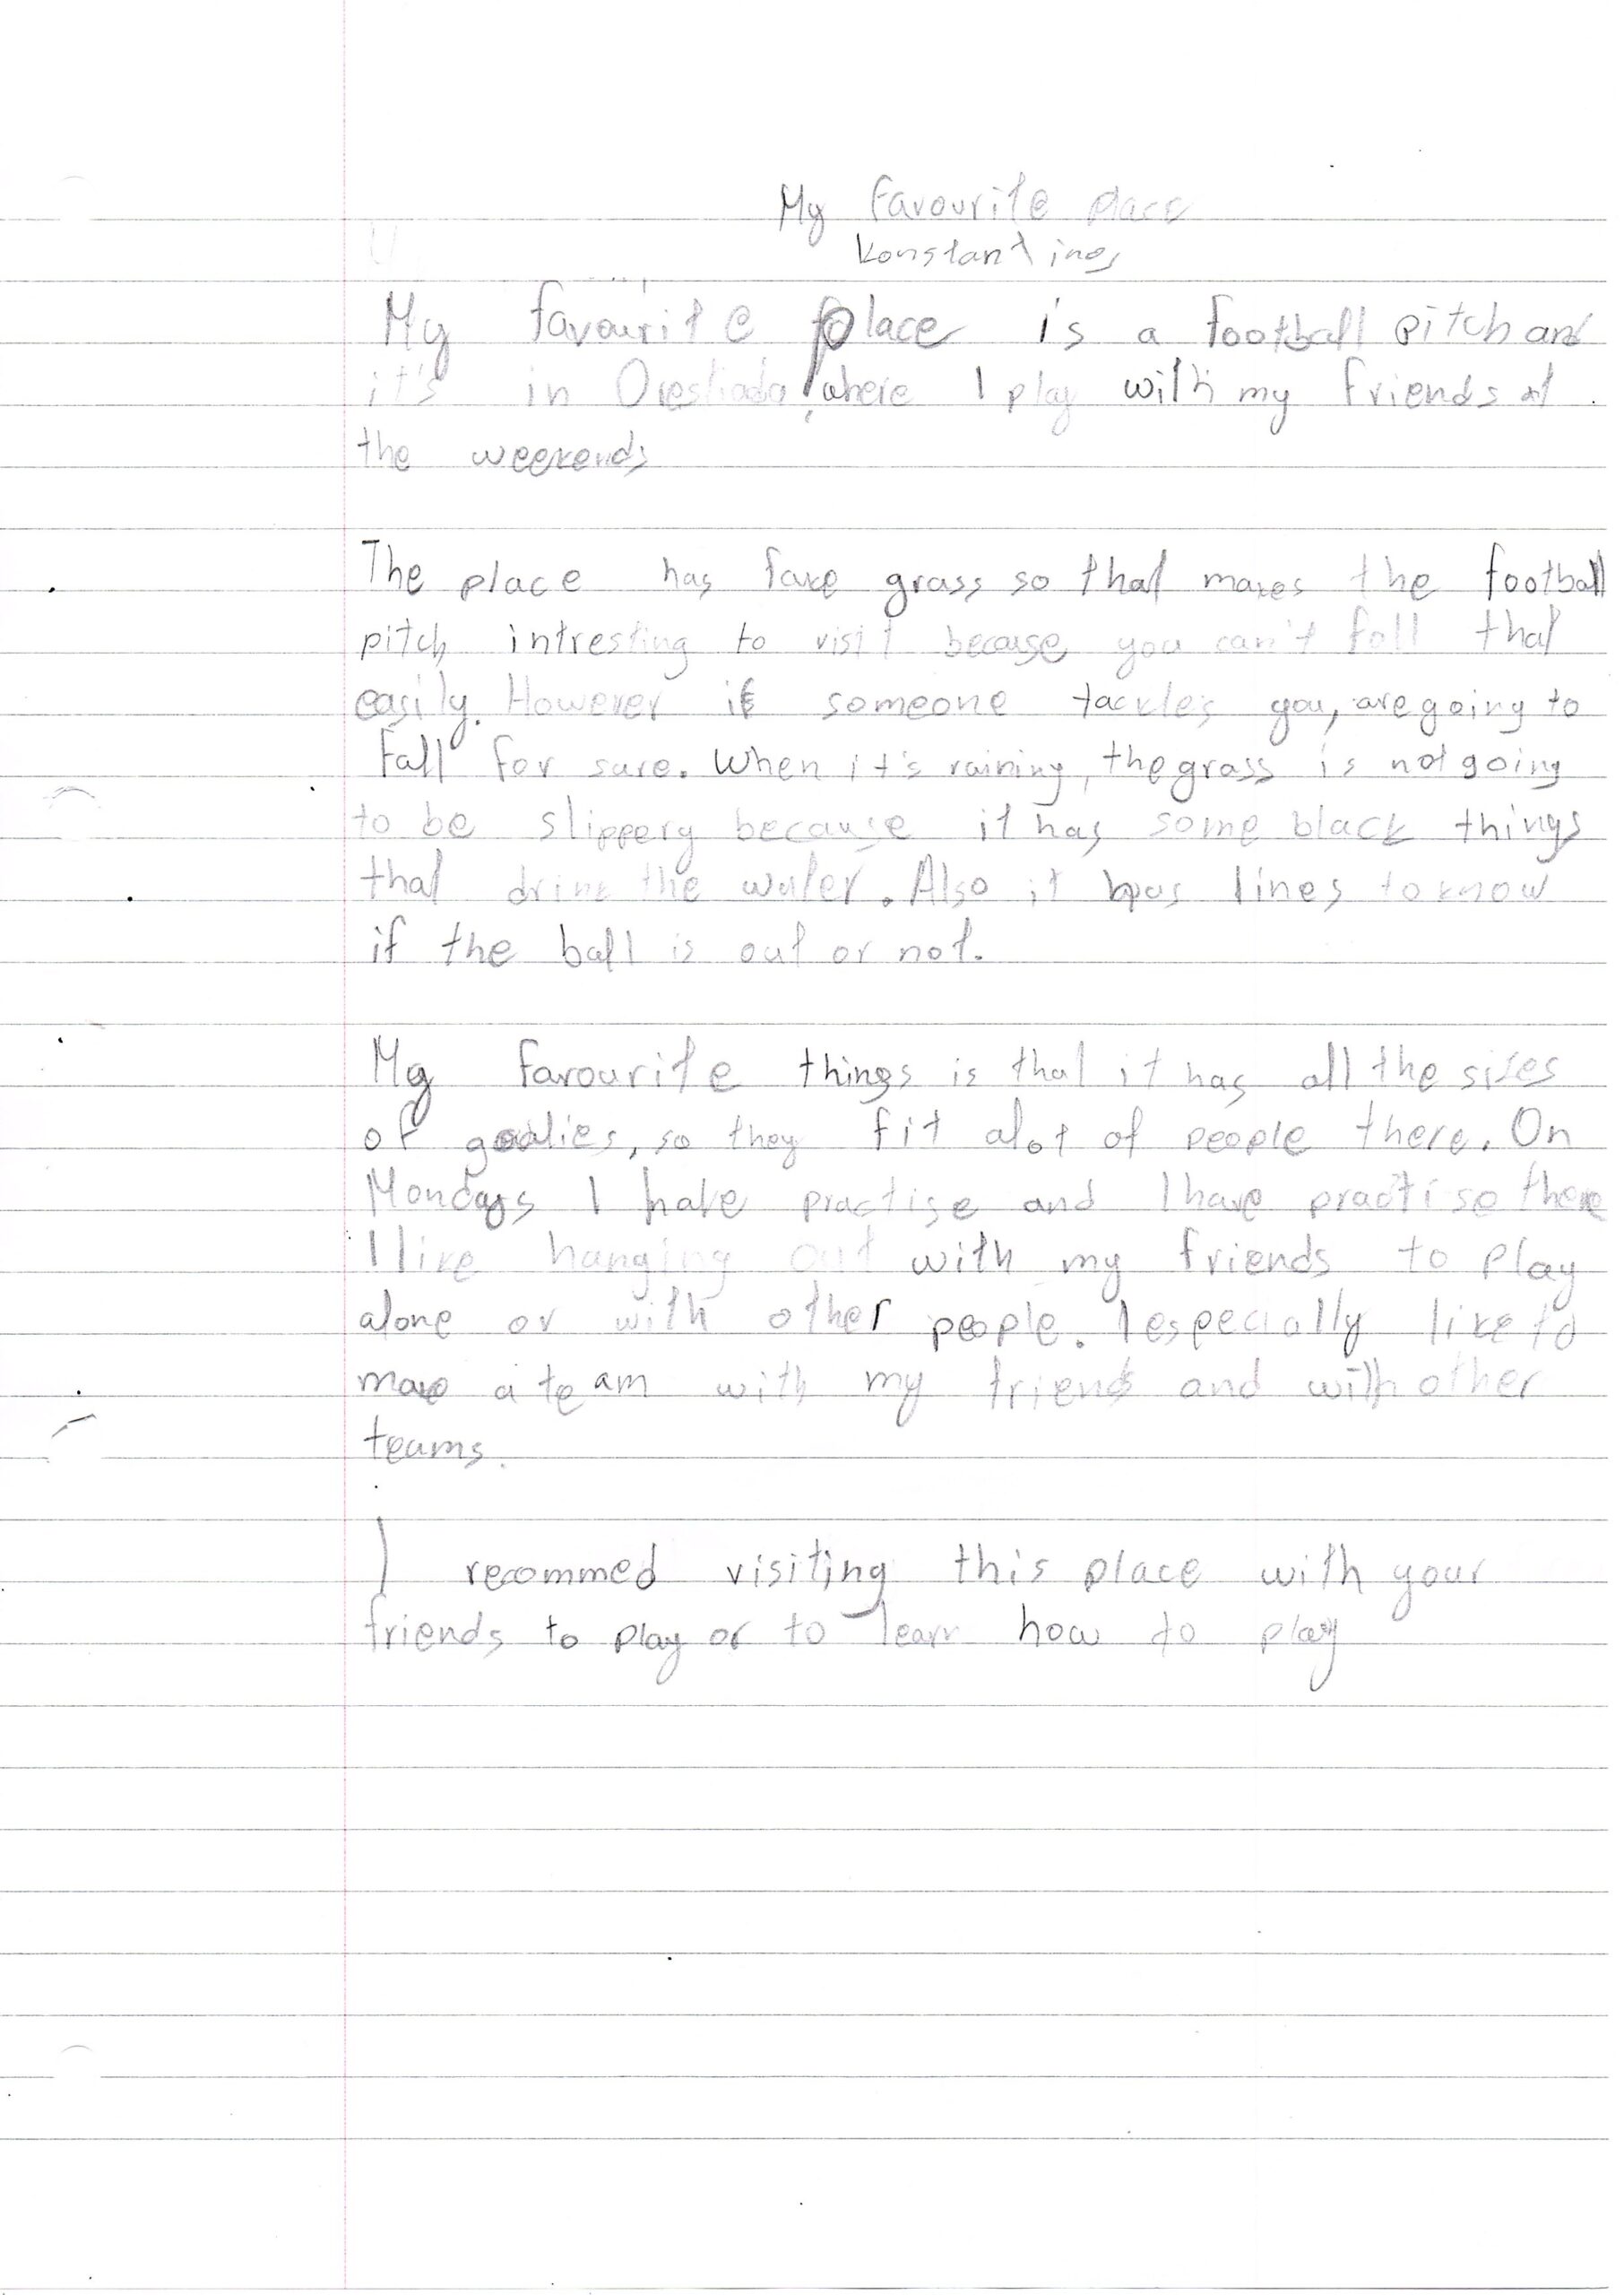 My favourite place
Konstantinos
My favourite place is a football pitch and
it's in Orestiada, where I play with my friends at
the weekends
The place has fake grass so that makes the football
pitch intresting to visit because you can't fall that
easily. However if someone tackles you, are going to
fall for sure. When it's raining, the grass is not going
to be slippery because it has some black things
that drink the water. Also it has lines to know
if the ball is out or not.
My favourite things is that it has all the sizes
of goalies, so they fit alot of people there. On
Mondays I have practise and I have practise there
I like hanging out with my friends to play
alone or with other people. I especially like to
make a team with my friends and with other
teams.
I recommed visiting this place with your
friends to play or to learn how to play